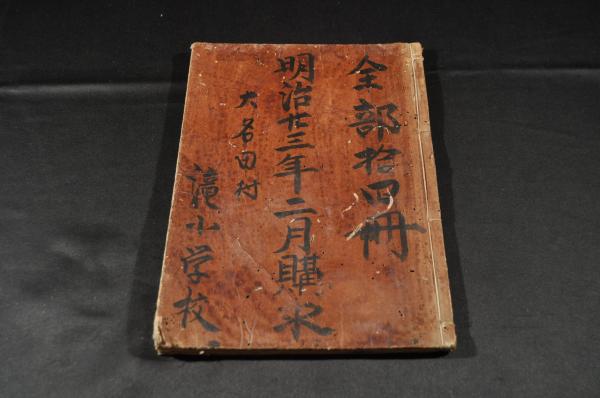 全部拾四冊
明治廿三年二月購求
大名田村
滝小学校